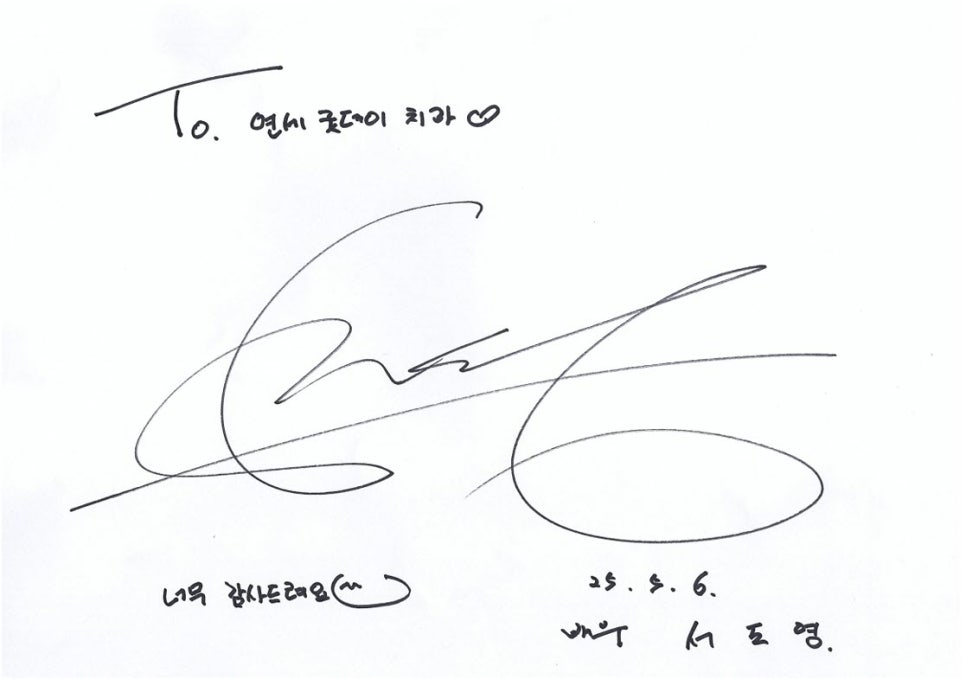 To. 연세 굿데이 치과♡
너무 감사드려요
25. 5. 6.
배우 서도영.